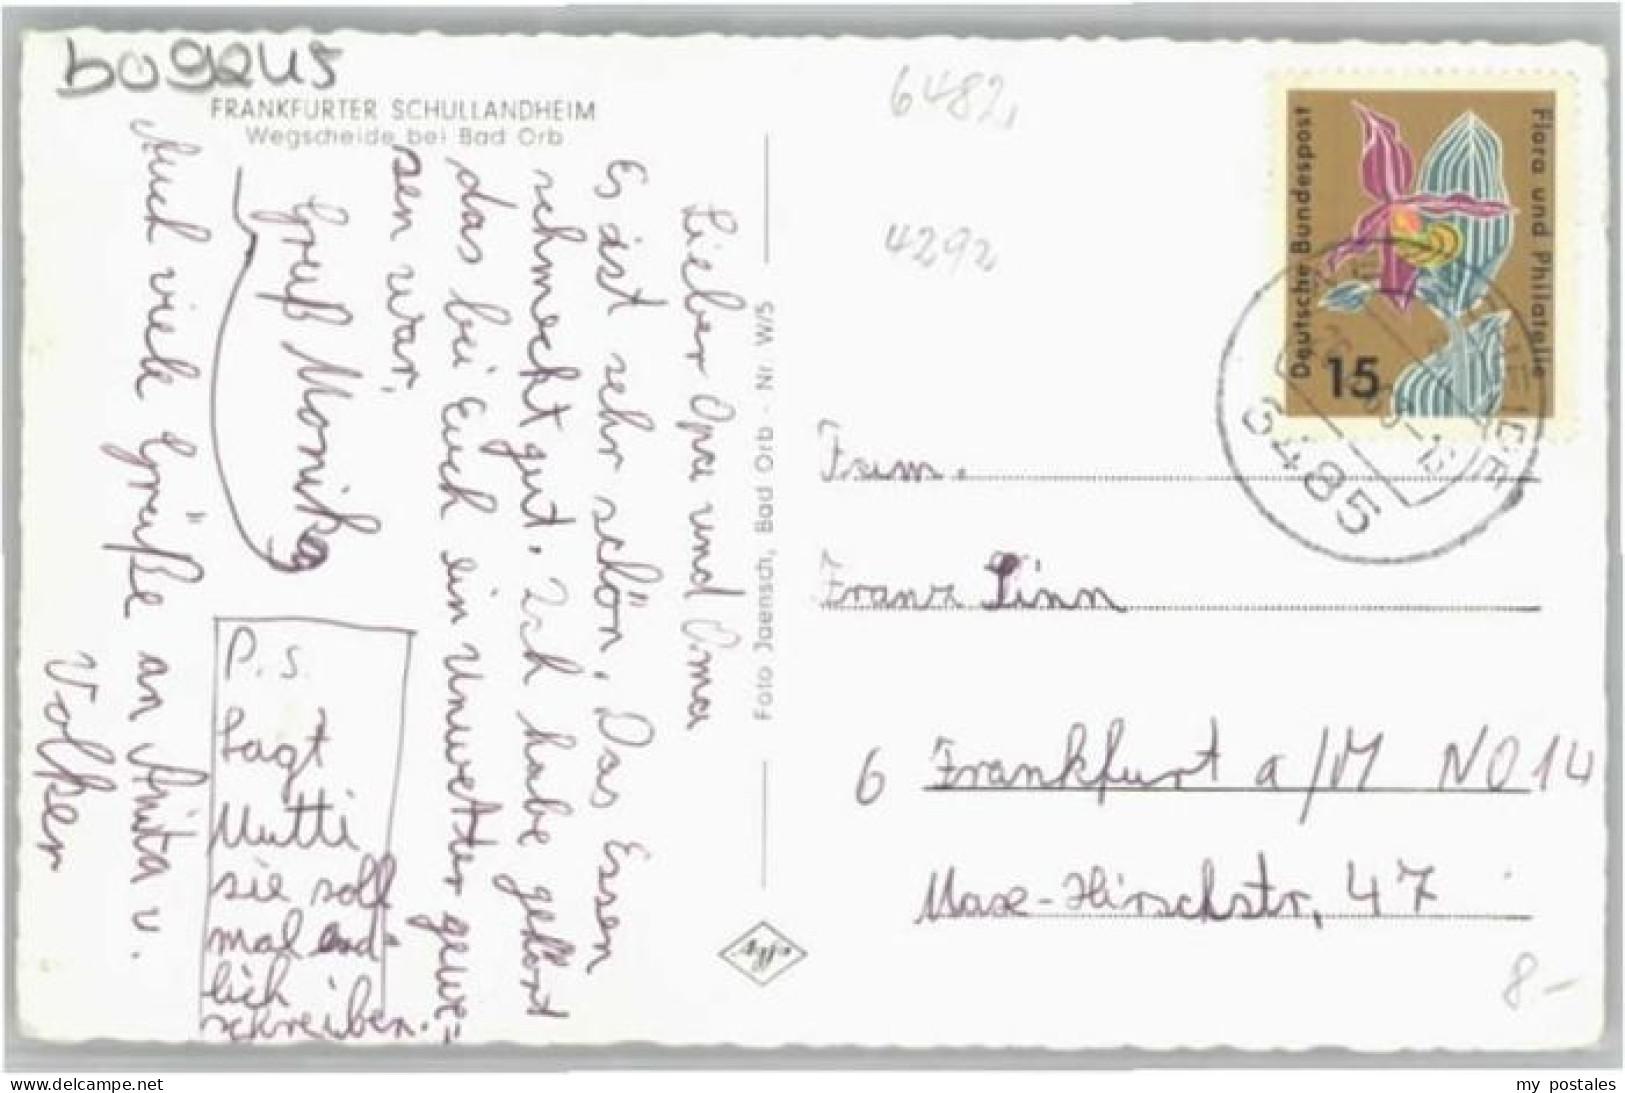 bogaus
FRANKFURTER SCHULLANDHEIM
Wegscheide bei Bad Orb
Lieber Opa und Oma
Es ist sehr schön. Das Essen
schmeckt gut. Ich habe gehört
das bei Euch ein Unwetter gewe=
sen war,
Gruß Monika
Auch viele Grüße an Anita u.
Volker
P.S.
Sagt
Mutti
sie soll
mal end=
lich
schreiben.
Foto Jaensch, Bad Orb - Nr. W/5
Agfa
6482,
4292
Deutsche Bundespost
Flora und Philatelie
15
6485
Fam.
Franz Linn
6 Frankfurt a/M NO 14
Max-Hirschstr, 47
8.-
www.delcampe.net
my postales